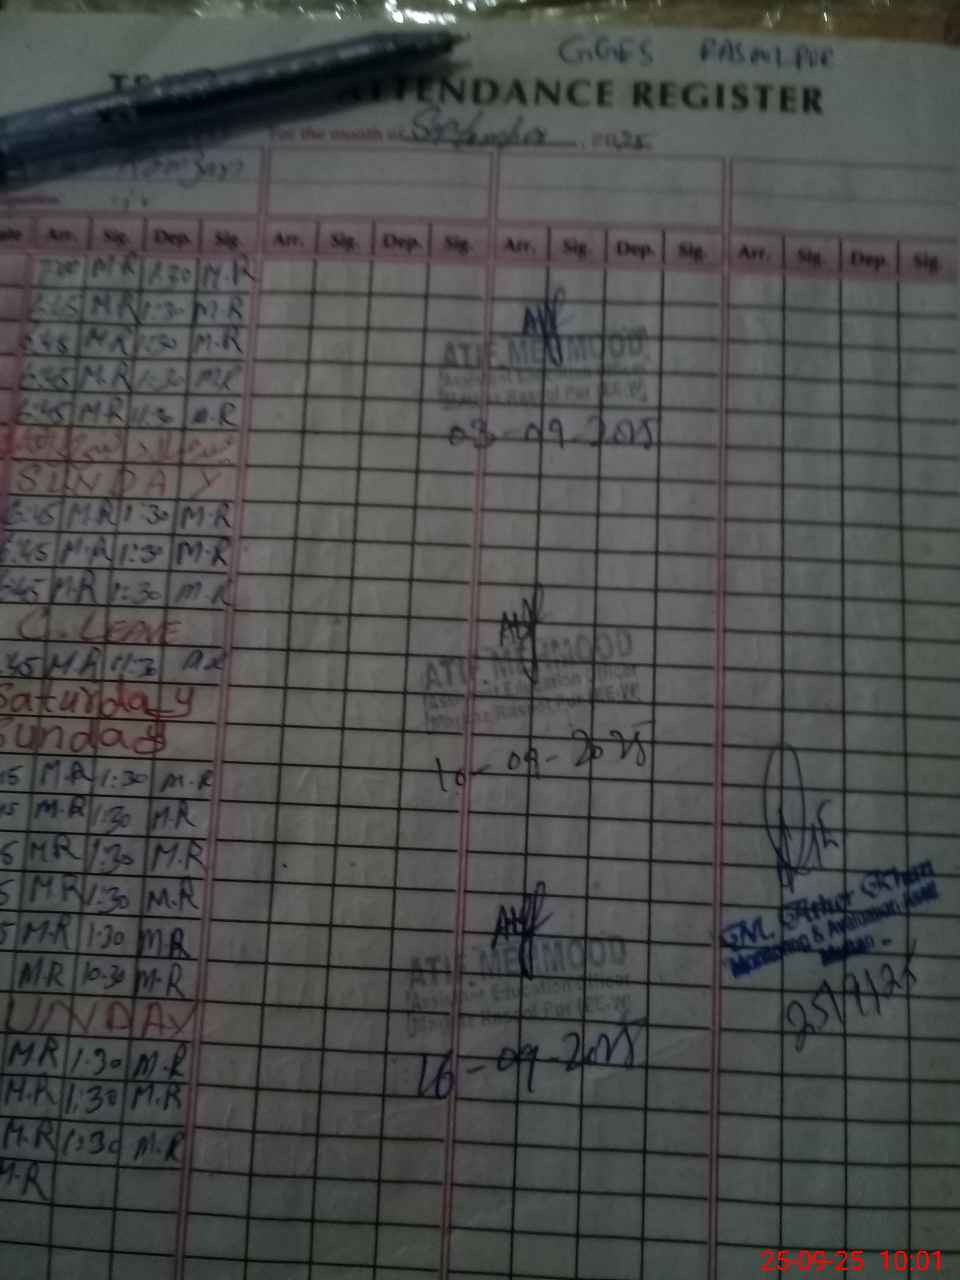 GGES RASULPUR
ATTENDANCE REGISTER
For the month of September 2025
Arr. Sig. Dep. Sig. Arr. Sig. Dep. Sig. Arr. Sig. Dep. Sig. Arr. Sig. Dep. Sig.
7:00 M.R 1:30 M.R
6:45 M.R 1:30 M.R
6:45 M.R 1:30 M.R
ATIF MEHMOOD
6:45 M.R 1:30 M.R
Assistant Education Officer
Markaz Rasool Pur
6:45 M.R 1:30 M.R
03-09-2025
SUNDAY
6:45 M.R 1:30 M.R
6:45 M.R 1:30 M.R
6:45 M.R 1:30 M.R
C. LEAVE
ATIF MEHMOOD
:45 M.R 1:30 M.R
Assistant Education Officer
Saturday
Markaz Rasool Pur
Sunday
10-09-2025
45 M.R 1:30 M.R
45 M.R 1:30 M.R
5 M.R 1:30 M.R
5 M.R 1:30 M.R
5 M.R 1:30 M.R
ATIF MEHMOOD
Monitoring &
M.R 10:30 M.R
Assistant Education Officer
Markaz Rasool Pur
UNDAY
25/9/25
M.R 1:30 M.R
16-09-2025
M.R 1:30 M.R
M.R 1:30 M.R
M.R
25-09-25 10:01